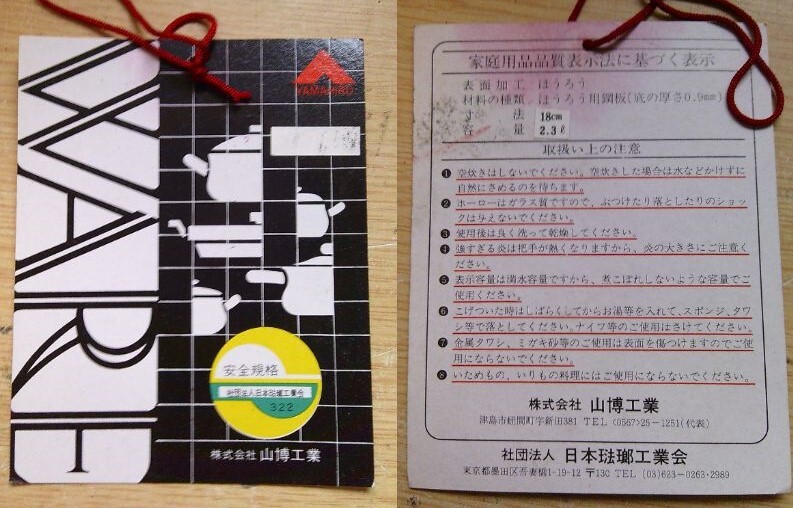 WARE
YAMAHIRO
安全規格
社団法人日本琺瑯工業会
322
株式会社 山博工業
家庭用品品質表示法に基づく表示
表面加工 ほうろう
材料の種類 ほうろう用鋼板(底の厚さ0.9mm)
寸法 18cm
容量 2.3ℓ
取扱い上の注意
❶ 空炊きはしないでください。空炊きした場合は水などかけずに
自然にさめるのを待ちます。
❷ ホーローはガラス質ですので、ぶつけたり落としたりのショッ
クは与えないでください。
❸ 使用後は良く洗って乾燥してください。
❹ 強すぎる炎は把手が熱くなりますから、炎の大きさにご注意く
ださい。
❺ 表示容量は満水容量ですから、煮こぼれしないような容量でご
使用ください。
❻ こげついた時はしばらくしてからお湯等を入れて、スポンジ、タワ
シ等で落としてください。ナイフ等のご使用はさけてください。
❼ 金属タワシ、ミガキ砂等のご使用は表面を傷つけますのでご使
用にならないでください。
❽ いためもの、いりもの料理にはご使用にならないでください。
株式会社 山博工業
津島市紐間町字新田381 TEL (0567)25-1251(代表)
社団法人 日本琺瑯工業会
東京都墨田区吾妻橋1-19-12 〒130 TEL (03)623-0263・2989